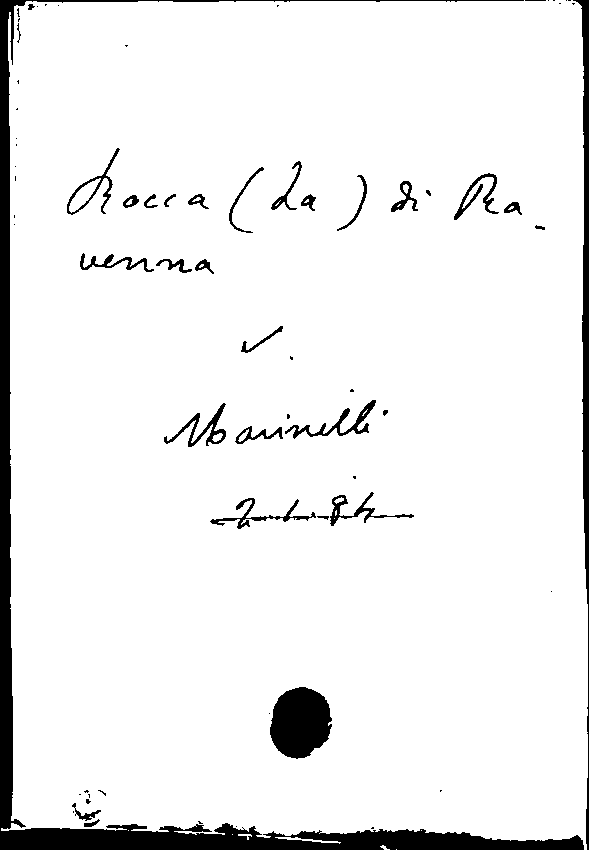 Rocca (La) di Ra-
venna
v.
Marinelli